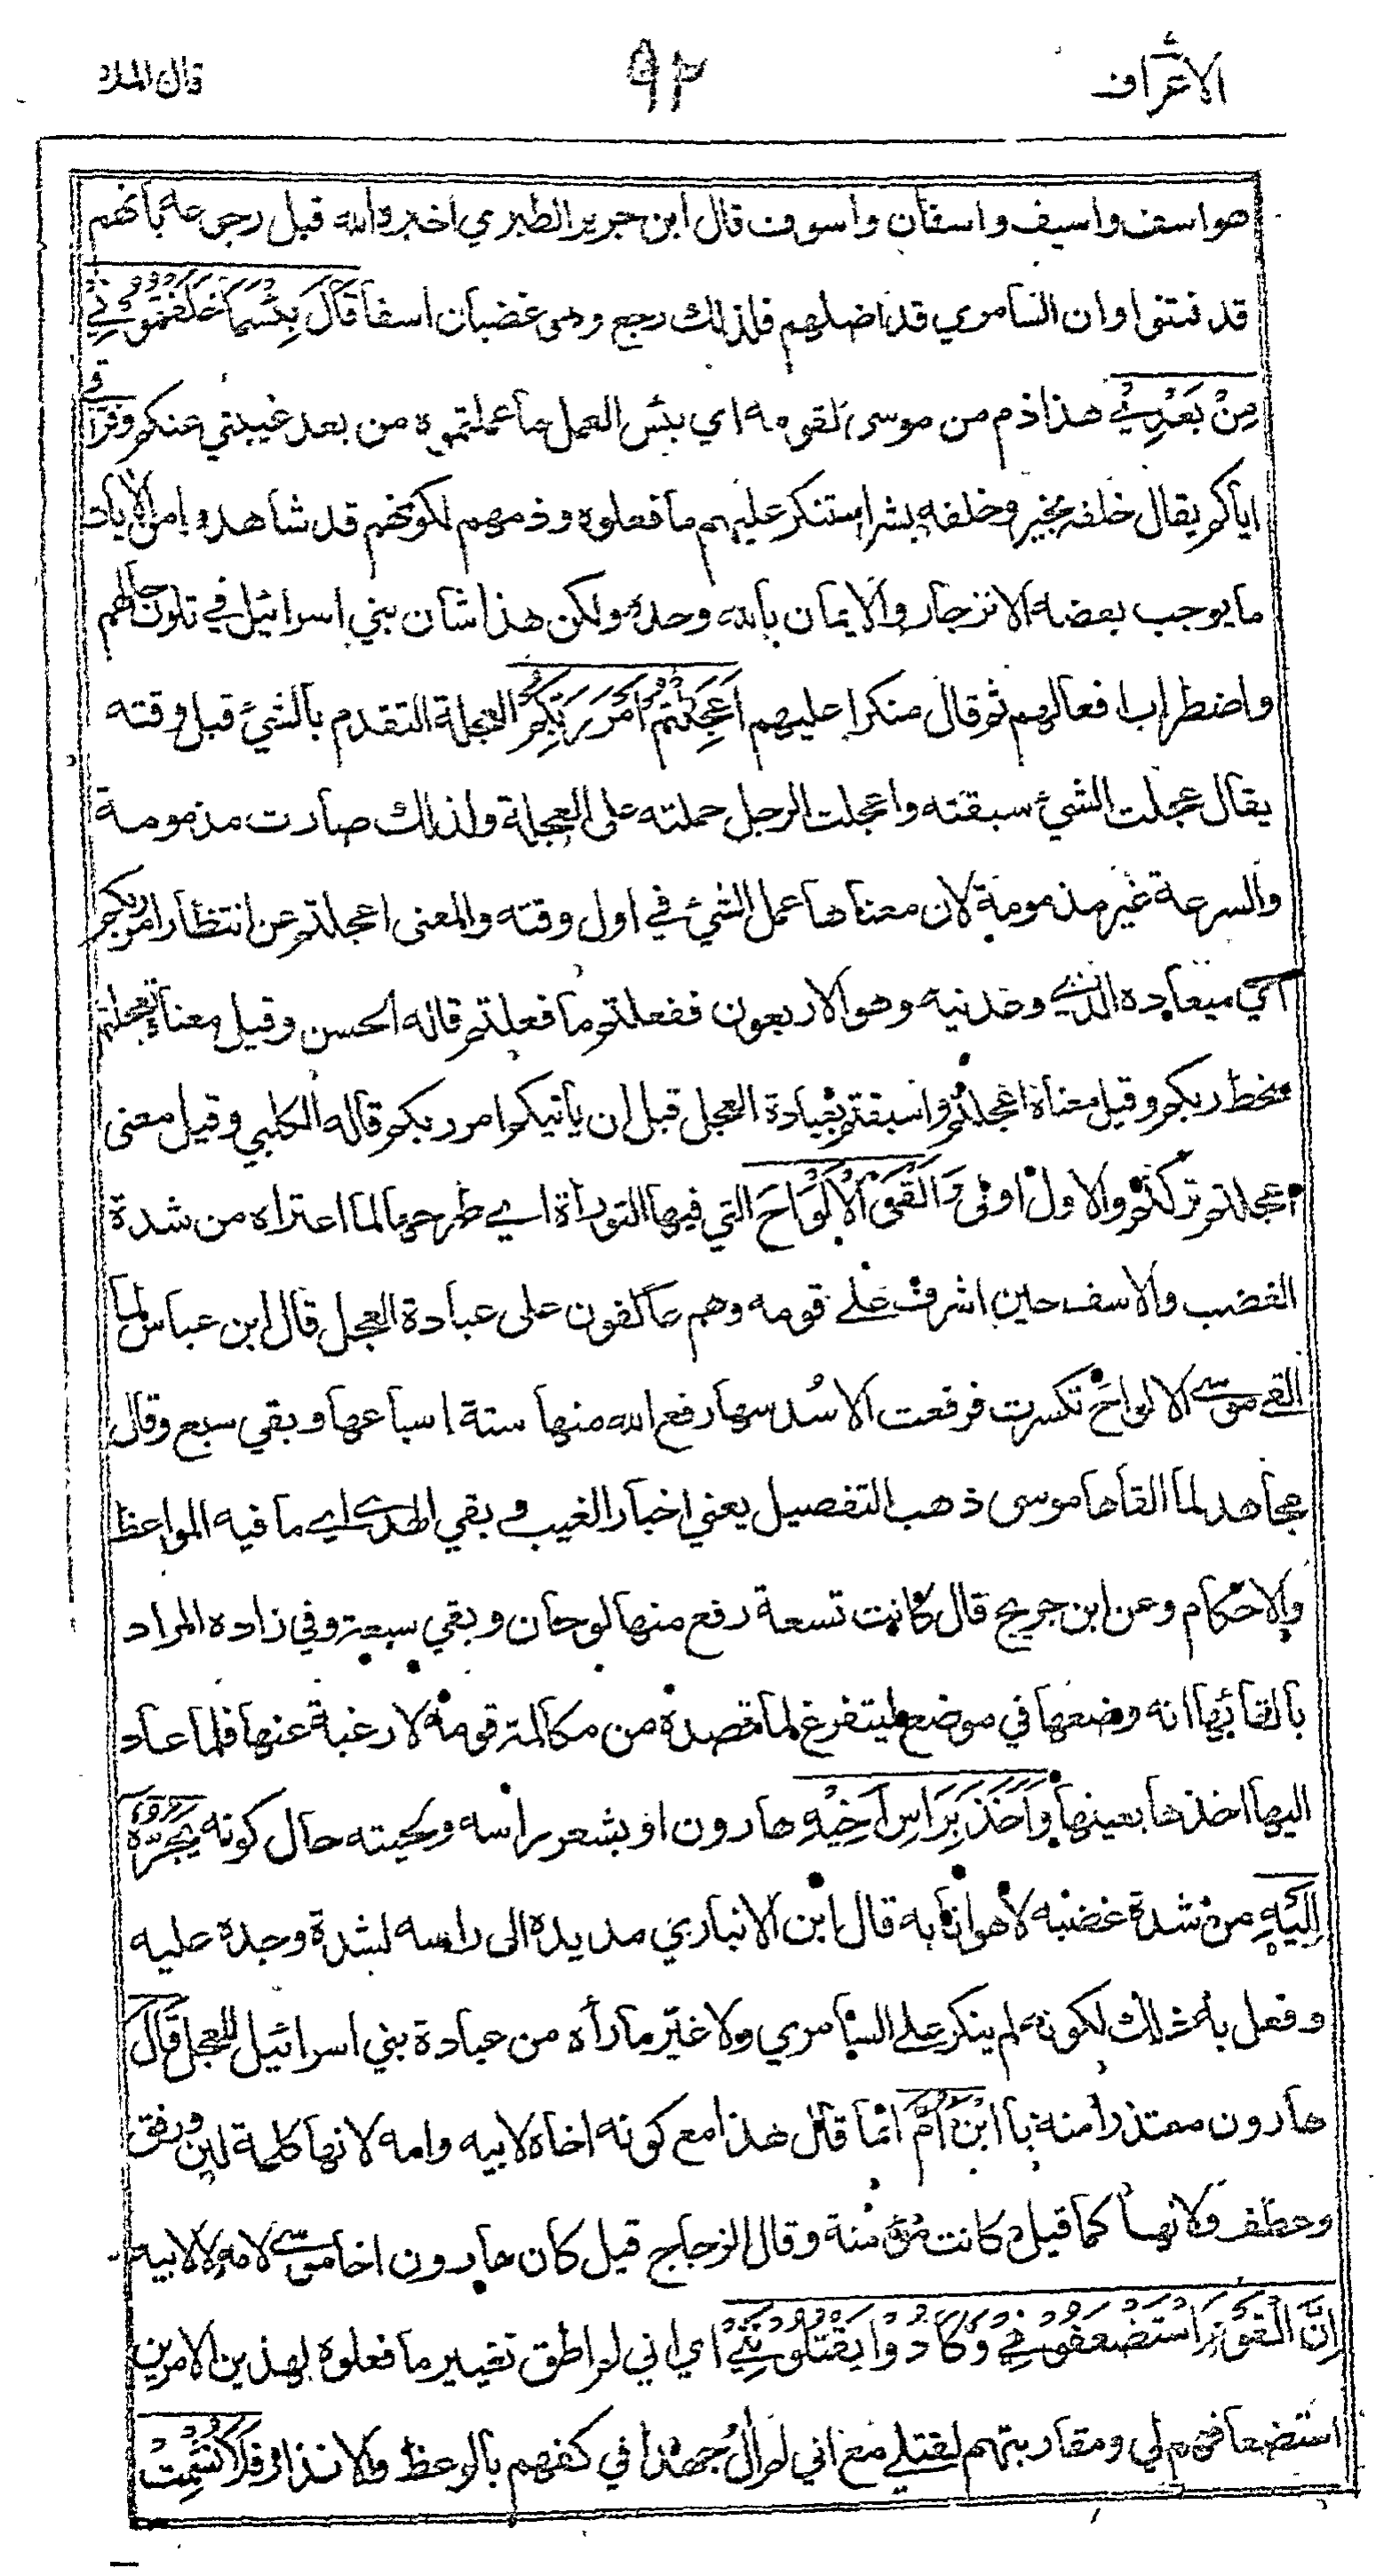 الاعراف
٩٢
قال الملا
هو اسف واسيف واسفان واسوف قال ابن جرير الطبري اخبره الله قبل رجوعه بانهم
قد فتنوا وان السامري قد اضلهم فلذلك رجع وهو غضبان اسفا قَالَ بِئْسَمَا خَلَفْتُمُوْنِيْ
مِنْ بَعْدِيْ هذا ذم من موسى لقومه اي بئس العمل ما عملتموه من بعد غيبتي عنكم وفراقي
اياكم يقال خلفه بخير وخلفه بشر استنكر عليهم ما فعلوه وذمهم لكونهم قد شاهدوا من الايات
ما يوجب بعضه الانزجار والايمان بالله وحده ولكن هذا شان بني اسرائيل في تلون حالهم
واضطراب افعالهم ثم قال منكرا عليهم اَعَجِلْتُمْ اَمْرَ رَبِّكُمْ العجلة التقدم بالشئ قبل وقته
يقال عجلت الشئ سبقته واعجلت الرجل حملته على العجلة ولذلك صارت مذمومة
والسرعة غير مذمومة لان معناها عمل الشئ في اول وقته والمعنى اعجلتم عن انتظار امر ربكم
اي ميعاده الذي وعدنيه وهو الاربعون ففعلتم ما فعلتم قاله الحسن وقيل معناه تعجلتم
سخط ربكم وقيل معناه اعجلتم واسبقتم بعبادة العجل قبل ان ياتيكم امر ربكم قاله الكلبي وقيل معنى
اعجلتم تركتم والاول اولى وَاَلْقَى الْاَلْوَاحَ التي فيها التوراة اي طرحها لما اعتراه من شدة
الغضب والاسف حين اشرف على قومه وهم عاكفون على عبادة العجل قال ابن عباس لما
القى موسى الالواح تكسرت فرفعت الا سُدسها رفع الله منها ستة اسباعها وبقي سبع وقال
مجاهد لما القاها موسى ذهب التفصيل يعني اخبار الغيب وبقي الهدى اي ما فيه المواعظ
والاحكام وعن ابن جريج قال كانت تسعة رفع منها لوحان وبقي سبعة وفي زاده المراد
بالقائها انه وضعها في موضع ليتفرغ لما قصده من مكالمة قومه لا رغبة عنها فلما عاد
اليها اخذها بعينها وَاَخَذَ بِرَاْسِ اَخِيْهِ هارون او بشعر راسه ولحيته حال كونه يَجُرُّهٗ
اِلَيْهِ من شدة غضبه لا هوانا به قال ابن الانباري مد يده الى راسه لشدة وجده عليه
وفعل به ذلك لكونه لم ينكر على السامري ولا غيّر ما رأه من عبادة بني اسرائيل للعجل قَالَ
هارون معتذرا منه يا ابْنَ اُمَّ انما قال هذا مع كونه اخاه لابيه وامه لانها كلمة لين ورفق
وعطف ولانها كما قيل كانت مؤمنة وقال الزجاج قيل كان هارون اخا موسى لامه لا لابيه
اِنَّ الْقَوْمَ اسْتَضْعَفُوْنِيْ وَكَادُوْا يَقْتُلُوْنَنِيْ اي اني لم اطق تغيير ما فعلوه لهذين الامرين
استضعافهم لي ومقاربتهم لقتلي مع اني لم اٰلُ جهدا في كفهم بالوعظ والانذار فَلَا تُشْمِتْ